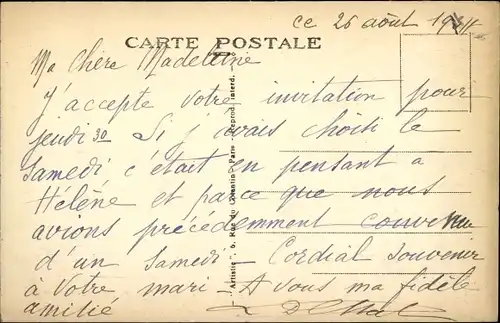 ce 26 août
CARTE POSTALE
Ma chère Madeleine
J'accepte votre invitation pour
jeudi 30 Si j'avais choisi le
Samedi c'était en pensant à
Hélène et parce que nous
avions précédemment convenu
d'un Samedi - Cordial souvenir
à votre mari - A vous ma fidèle
amitié
"Artistic" 6, Rue du - Paris - Reprod. interd.